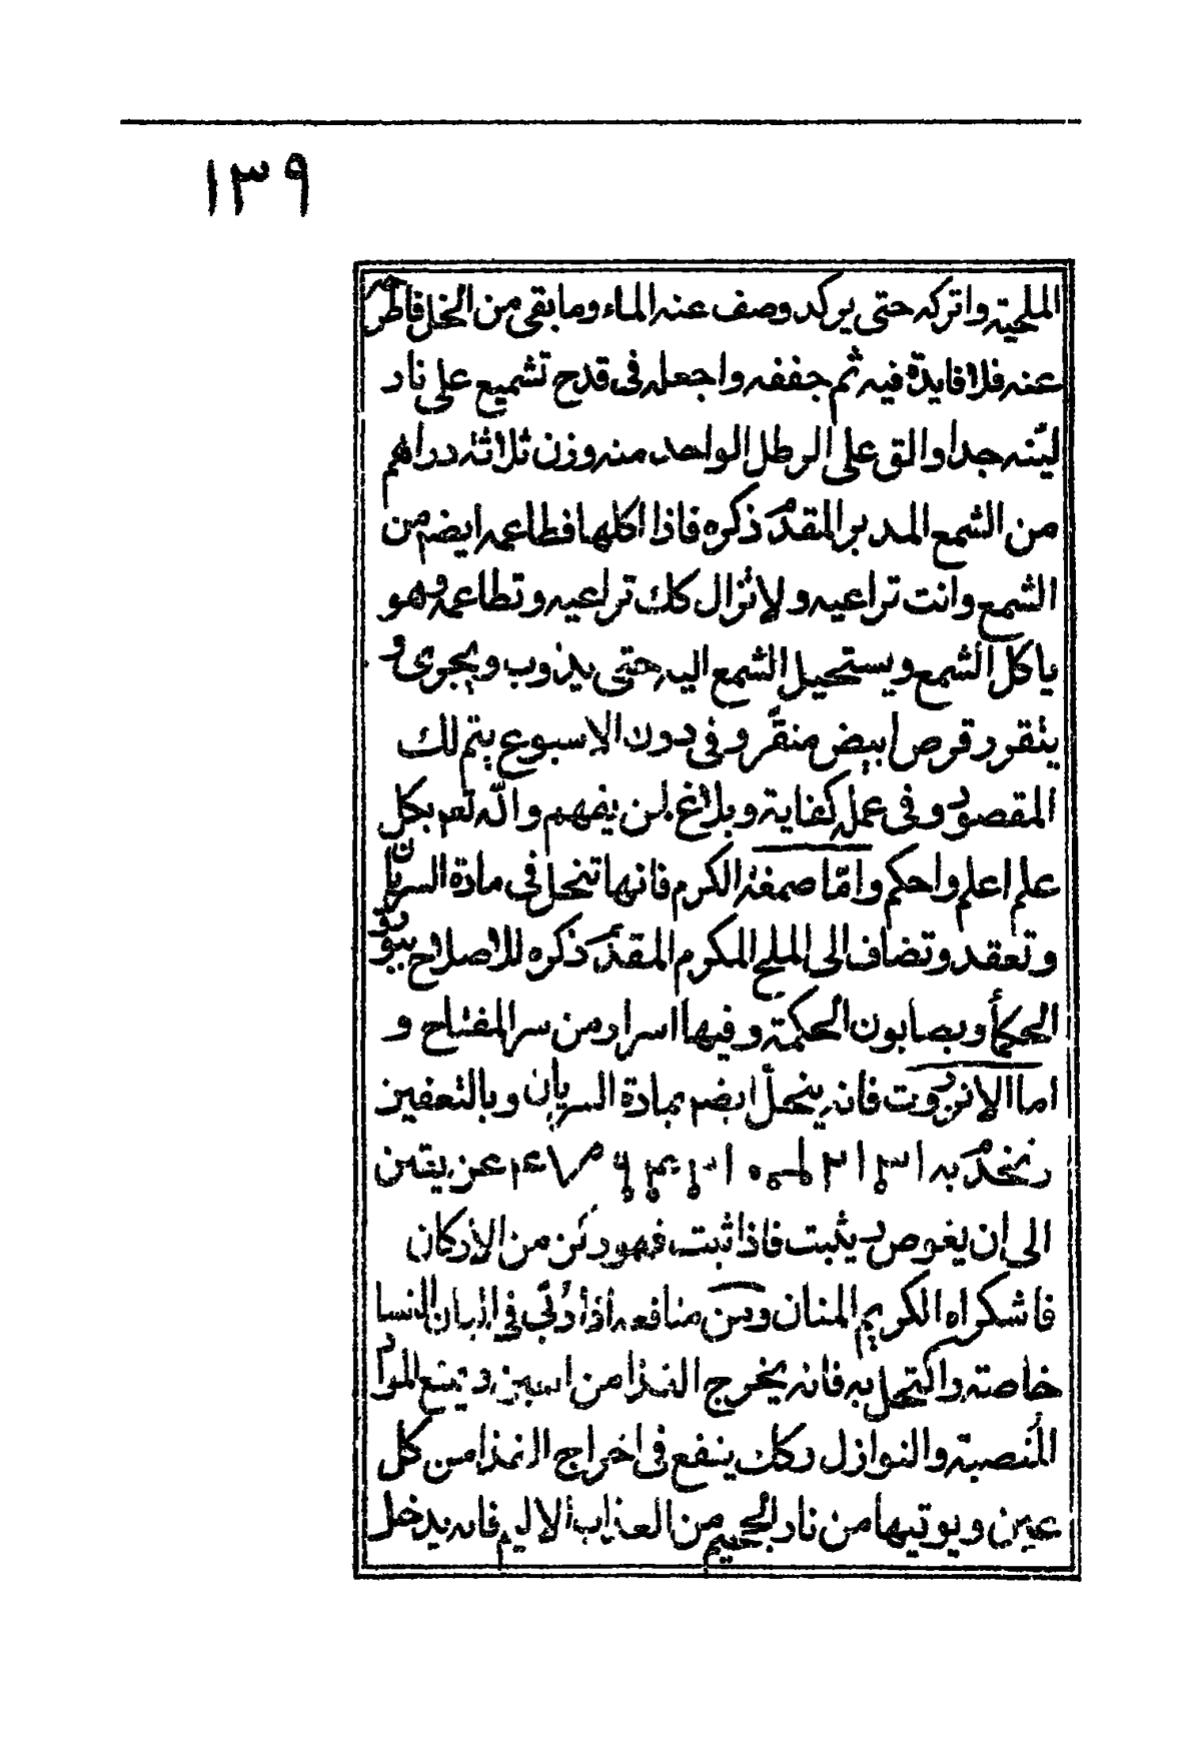 ١٣٩
الملحية واتركه حتى يركد وصف عنه الماء وما بقى من الخل فاطرحه
عنه فلا فايدة فيه ثم جففه واجعله فى قدح تشميع على نار
ليّنه جدا والق على الرطل الواحد منه وزن ثلاثة دراهم
من الشمع المدبر المقدم ذكره فاذا اكلها فطاعمه ايضم من
الشمع وانت تراعيه ولا تزال كك تراعيه وتطاعمه وهو
ياكل الشمع ويستحيل الشمع اليه حتى يذوب ويجرى و
يتقرر قرص ابيض منقّر وفى دون الاسبوع يتم لك
المقصود وفى عمله كفاية وبلاغ لمن يفهم والله تعم بكل
علم اعلم واحكم وامّا صمغة الكرم فانها تنحل فى مادة السريان
وتعقد وتضاف الى الملح المكرم المقدم ذكره للاصلاح ببورق
الحكمأ وبصابون الحكمة وفيها اسرار من سر المفتاح و
اما الانزروت فانه ينحلّ ايضم بمادة السريان وبالتعفين
الى ان يغوص يثبت فاذا ثبت فهو ركن من الأركان
فاشكر اه الكريم المنان ومن منافعه اذا دبّى فى البان النسا
خاصته واكتحل به فانه يخرج القذا من العين ويمنع المواد
المنصبة والنوازل وكك ينفع فى اخراج القذا من كل
عين ويوتيها من نار الجحيم من العذاب الاليم فانه يدخل